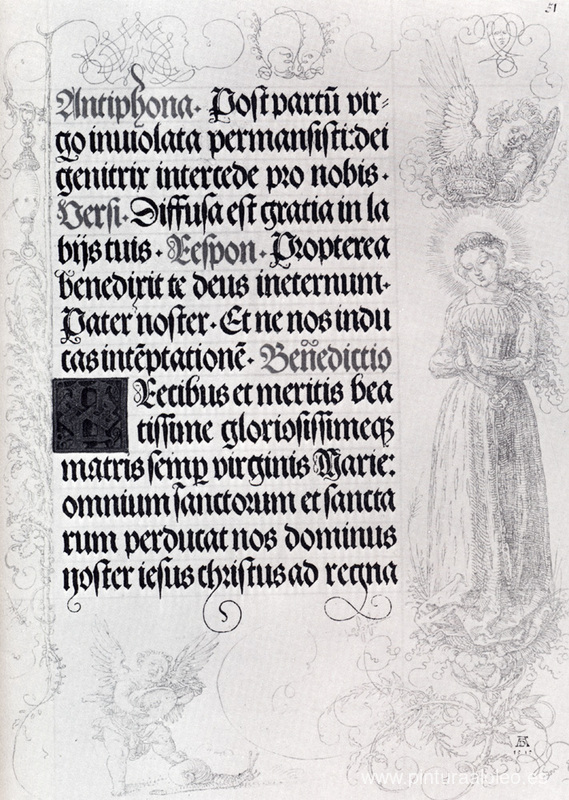 51
Antiphona. Post partū vir⸗
go inuiolata permansisti:dei
genitrix intercede pro nobis.
Versi. Diffusa est gratia in la
bijs tuis. Respon. Propterea
benedixit te deus ineternum.
Pater noster. Et ne nos indu
cas intēptationē. Benedictio
Precibus et meritis bea
tissime gloriosissimeqȝ
matris semꝑ virginis Marie:
omnium sanctorum et sancta
rum perducat nos dominus
noster iesus christus ad regna
AD
1515
www.pinturaaloleo.es